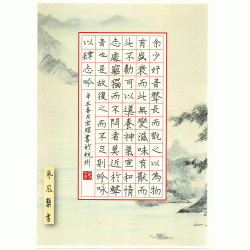 余少好音聲長而翫之以為物
有盛衰而此無變滋味有猒而
此不勌可以導養神氣宣和情
志處窮獨而不悶者莫近於聲
音也是故復之而不足則吟詠
以肆志吟
辛丑春月 書於杭州